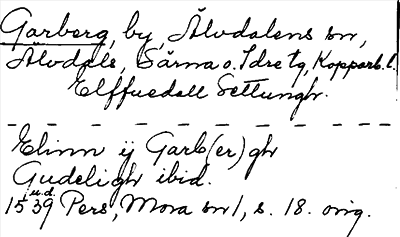 Garberg, by, Älvdalens sn,
Älvdals, Särna o. Idre tg, Kopparb. l.
Elffuedall Settungh.
Elinn ij Garb(er)gh
Gudeligh ibid.
j.u.d.
1539 Pers, Mora sn 1, s. 18. orig.